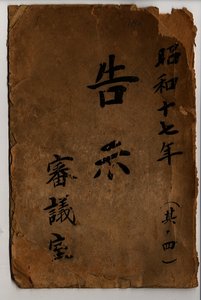 昭和十七年
(其・四)
告示
審議室